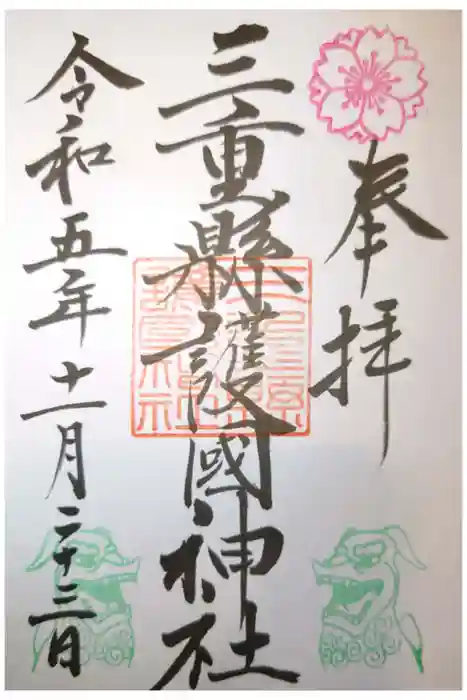 奉拝
三重縣護國神社
令和五年十一月二十三日